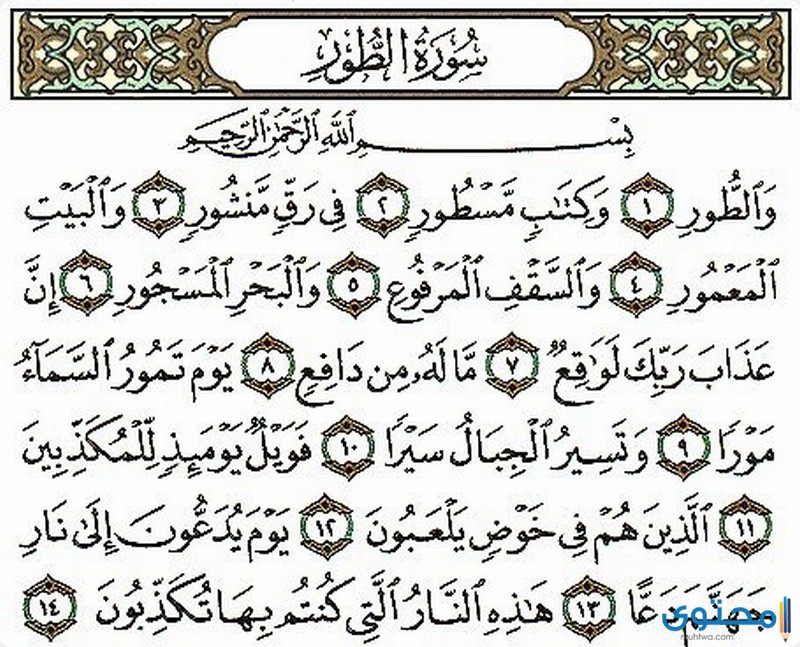 سُورَةُ الطُّورِ
بِسْمِ اللَّهِ الرَّحْمَٰنِ الرَّحِيمِ
وَٱلطُّورِ ١ وَكِتَٰبٍ مَّسْطُورٍ ٢ فِى رَقٍّ مَّنشُورٍ ٣ وَٱلْبَيْتِ
ٱلْمَعْمُورِ ٤ وَٱلسَّقْفِ ٱلْمَرْفُوعِ ٥ وَٱلْبَحْرِ ٱلْمَسْجُورِ ٦ إِنَّ
عَذَابَ رَبِّكَ لَوَٰقِعٌ ٧ مَّا لَهُۥ مِن دَافِعٍ ٨ يَوْمَ تَمُورُ ٱلسَّمَآءُ
مَوْرًا ٩ وَتَسِيرُ ٱلْجِبَالُ سَيْرًا ١٠ فَوَيْلٌ يَوْمَئِذٍ لِّلْمُكَذِّبِينَ
١١ ٱلَّذِينَ هُمْ فِى خَوْضٍ يَلْعَبُونَ ١٢ يَوْمَ يُدَعُّونَ إِلَىٰ نَارِ
جَهَنَّمَ دَعًّا ١٣ هَٰذِهِ ٱلنَّارُ ٱلَّتِى كُنتُم بِهَا تُكَذِّبُونَ ١٤
محتوى
muhtwa.com